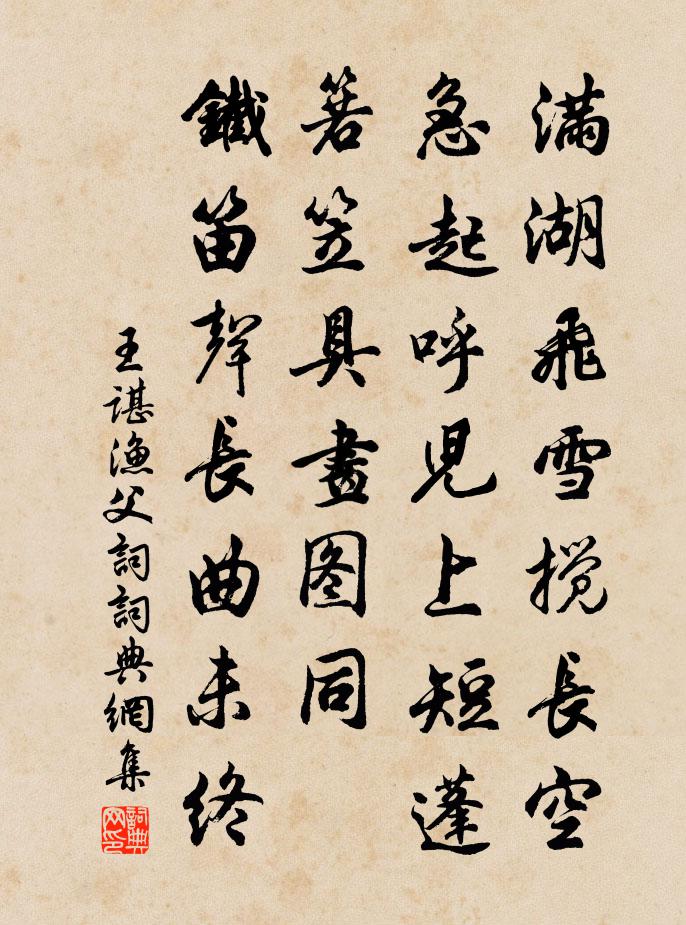 满湖飛雪搅長空
急起呼児上短蓬
箬笠具畫图同
鐵笛聲長曲未终
王諶漁父詞詞典網集
詞典网印